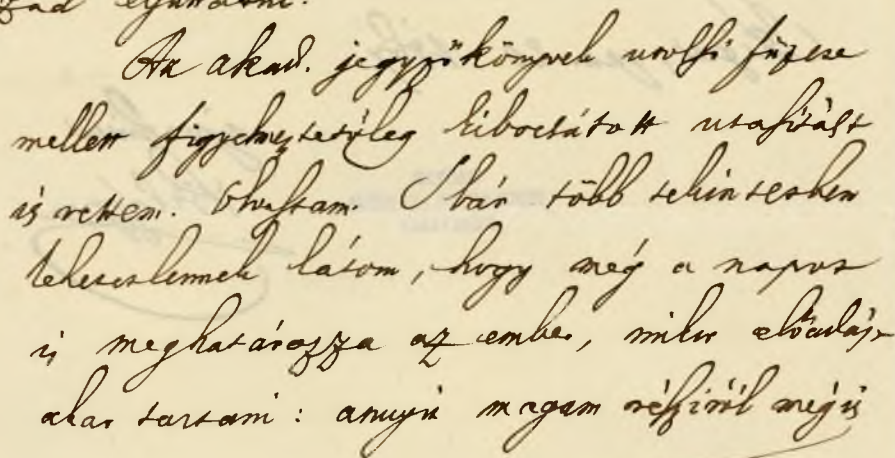 eljuttatni.
Az akad. jegyzőkönyvek utolsó füzete
mellett figyelmeztetőleg kibocsátott utasítást
is vettem. Olvastam. S bár több tekintetben
lehetetlennek látom, hogy még a napot
is meghatározza az ember, mikor előadást
akar tartani: annyit magam részéről mégis